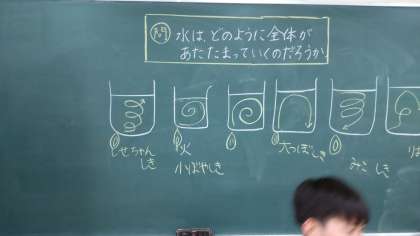 問 水は、どのように全体が
あたたまっていくのだろうか
しせちゃん
しき
火
小ばやしき
大つぼしき
みこしき